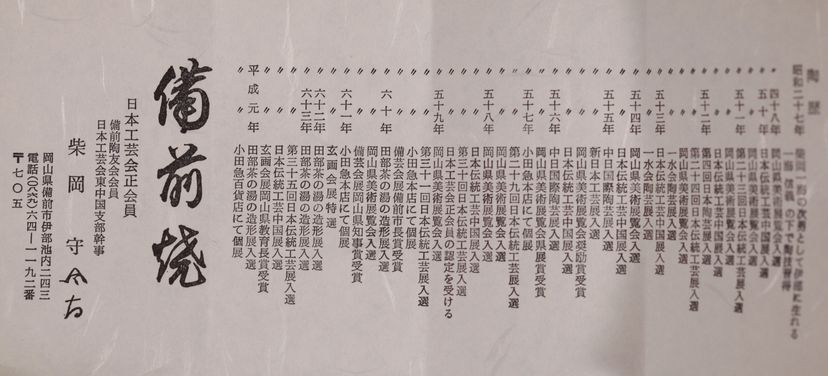 陶歴
昭和二十七年 柴岡一男の次男として伊部に生れる
一男 信義の下で陶技習得
〃 四十八年 岡山県美術展覧会入選
〃 五十年 日本伝統工芸中国展入選
〃 〃 岡山県美術展覧会入選
〃 五十一年 第二十三回日本伝統工芸展入選
〃 〃 岡山県美術展覧会入選
〃 〃 日本伝統工芸中国展入選
〃 五十二年 第四回日本伝統工芸展入選
〃 〃 第二十四回日本伝統工芸展入選
〃 〃 岡山県美術展覧会入選
〃 〃 一水会陶芸展入選
〃 五十三年 日本伝統工芸中国展入選
〃 〃 一水会陶芸展入選
〃 五十四年 岡山県美術展覧会入選
〃 〃 日本伝統工芸中国展入選
〃 五十五年 中日国際陶芸展入選
〃 〃 新日本工芸展入選
〃 〃 岡山県美術展覧会奨励賞受賞
〃 〃 日本伝統工芸中国展入選
〃 五十六年 中日国際陶芸展入選
〃 〃 岡山県美術展覧会県展賞受賞
〃 五十七年 小田急本店にて個展
〃 〃 第二十九回日本伝統工芸展入選
〃 〃 岡山県美術展覧会入選
〃 五十八年 岡山県美術展覧会入選
〃 〃 日本伝統工芸中国展入選
〃 〃 第三十回日本伝統工芸展入選
〃 〃 日本工芸会正会員の認定を受ける
〃 五十九年 岡山県美術展覧会入選
〃 〃 第三十一回日本伝統工芸展入選
〃 〃 小田急本店にて個展
〃 〃 備芸会展備前市長賞受賞
〃 六十年 田部茶の湯の造形展入選
〃 〃 岡山県美術展覧会入選
〃 〃 備芸会展岡山県知事賞受賞
〃 六十一年 小田急本店にて個展
〃 〃 玄画会展特選
〃 六十二年 田部茶の湯の造形展入選
〃 六十三年 田部茶の湯の造形展入選
〃 〃 第三十五回日本伝統工芸展入選
〃 〃 日本伝統工芸中国展入選
〃 〃 玄画会展岡山県教育長賞受賞
平成元年 田部茶の湯の造形展入選
〃 〃 小田急百貨店にて個展
備前焼
日本工芸会正会員
備前陶友会会員
日本工芸会東中国支部幹事
柴岡 守
岡山県備前市伊部池内二四三
電話(〇八六九)六四―一一九二番
〒七〇五